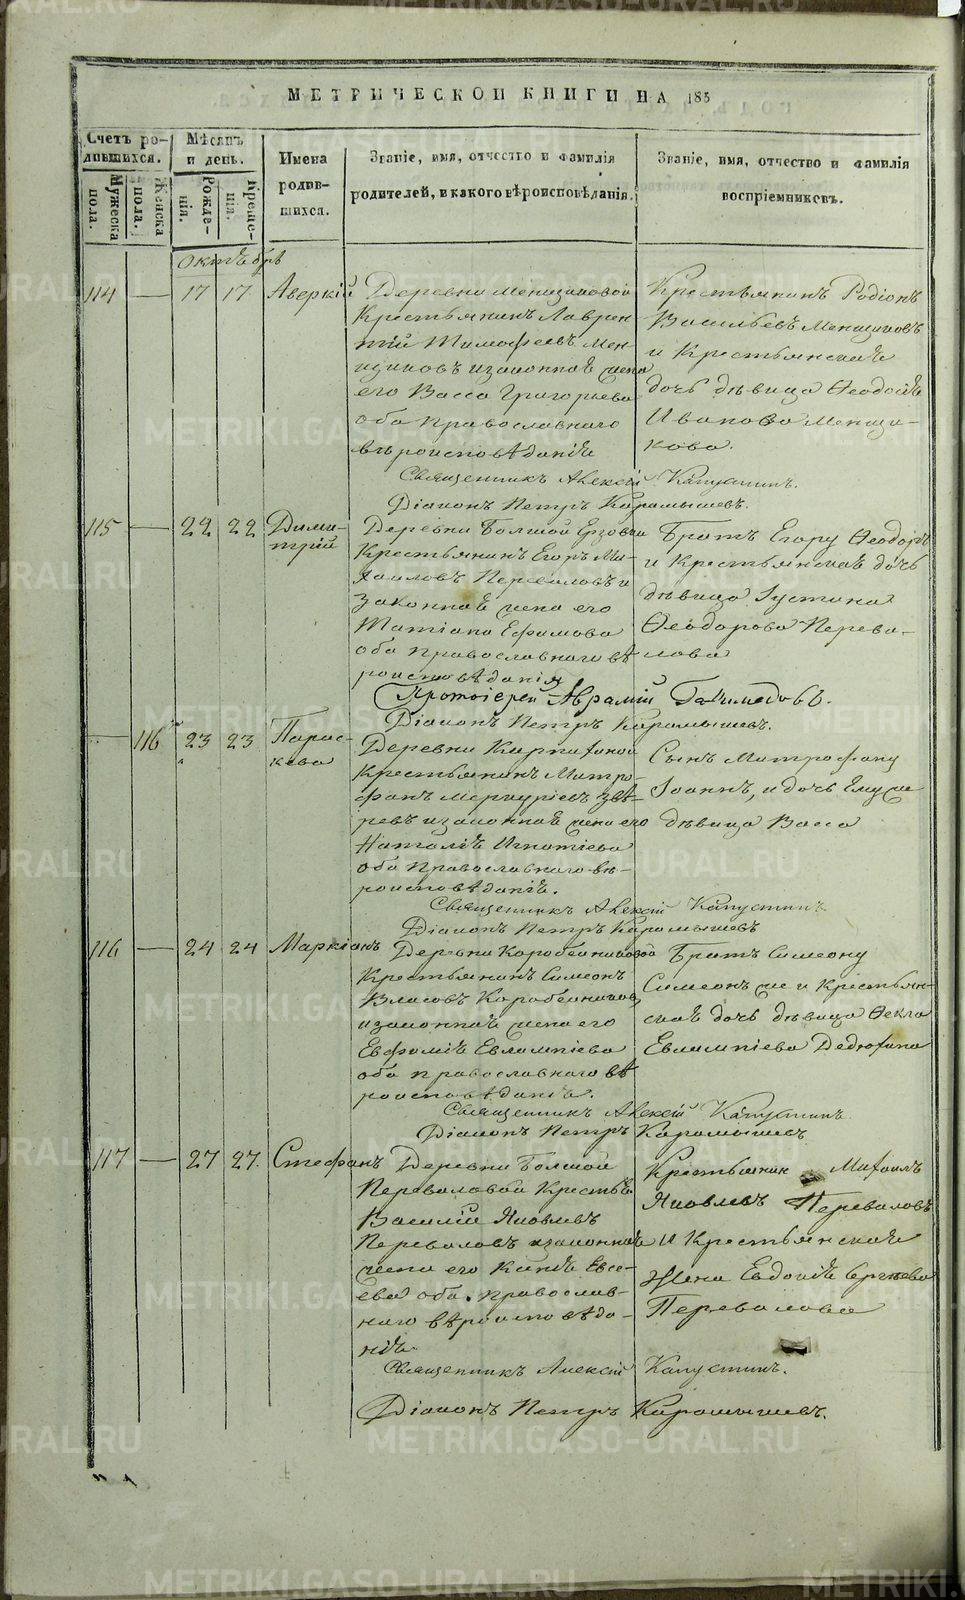 МЕТРИЧЕСКОЙ КНИГИ НА 185
Счетъ родившихся.
Мужеска пола.
Женска пола.
Мѣсяцъ и день.
Рожденія.
Крещенія.
Имена родившихся.
Званіе, имя, отчество и фамилія
родителей, и какого вѣроисповѣданія.
Званіе, имя, отчество и фамилія
воспріемниковъ.
Октѣбрѣ
114 — 17 17 Аверкій
Деревни Менщиковой
Крестьянинъ Лаврен
тій Тимофеевъ Мен
щиковъ изаконнаѣ жена
его Васса Григорьева
оба православнаго
вѣроисповѣданіѣ
Крестьянинъ Родіонъ
Васильевъ Менщиковъ
и Крестьянскаѣ
дочь дѣвица Ѳеодосіѣ
Иванова Менщи-
кова.
Священникъ Алексій Капустинъ.
Діаконъ Петръ Карамышевъ.
115 — 22 22 Дими-
трій
Деревни Болшой Ерзовки
Крестьянинъ Егоръ Ми-
хаиловъ Переваловъ и
законнаѣ жена его
Татіана Ефимова
оба православнаго вѣ
роисповѣданія
Братъ Егору Ѳеодоръ
и Крестьянскаѣ дочь
дѣвица Іустина
Ѳеодорова Перева-
лова
Протоіерей Аврамій
Діаконъ Петръ Карамышевъ.
— 116 23 23 Парас-
кева
Деревни
Крестьянинъ Митро-
фанъ Меркуріевъ Звѣ-
ревъ изаконнаѣ жена его
Наталіѣ Игнатіева
оба православнаго вѣ-
роисповѣданіѣ.
Сынъ Митрофану
Іоаннъ, и дочь Ему же
дѣвица Васса
Священникъ Алексій Капустинъ
Діаконъ Петръ Карамышевъ
116 — 24 24 Маркіанъ
Деревни Коробейниковой
Крестьянинъ Симеонъ
Власовъ Коробейниковъ
изаконнаѣ жена его
Евфиміѣ Евлампіева
оба православнаго вѣ
роисповѣданіѣ.
Братъ Симеону
Симеонъ же и Крестьян-
скаѣ дочь дѣвица Ѳекла
Евлампіева Дедюхина
Священникъ Алексій Капустинъ
Діаконъ Петръ Карамышевъ
117 — 27 27. Стефанъ
Деревни Болшой
Переваловой Крестьѣ
Василій Яковлевъ
Переваловъ изаконнаѣ
жена его Евсе-
ева оба православ-
наго вѣроисповѣда-
ніѣ.
Крестьянин Михаилъ
Яковлевъ Переваловъ
и Крестьянскаѣ
Жена Евдокіѣ Сергѣева
Перевалова
Священникъ Алексій Капустинъ.
Діаконъ Петръ Карамышевъ.
METRIKI.GASO-URAL.RU